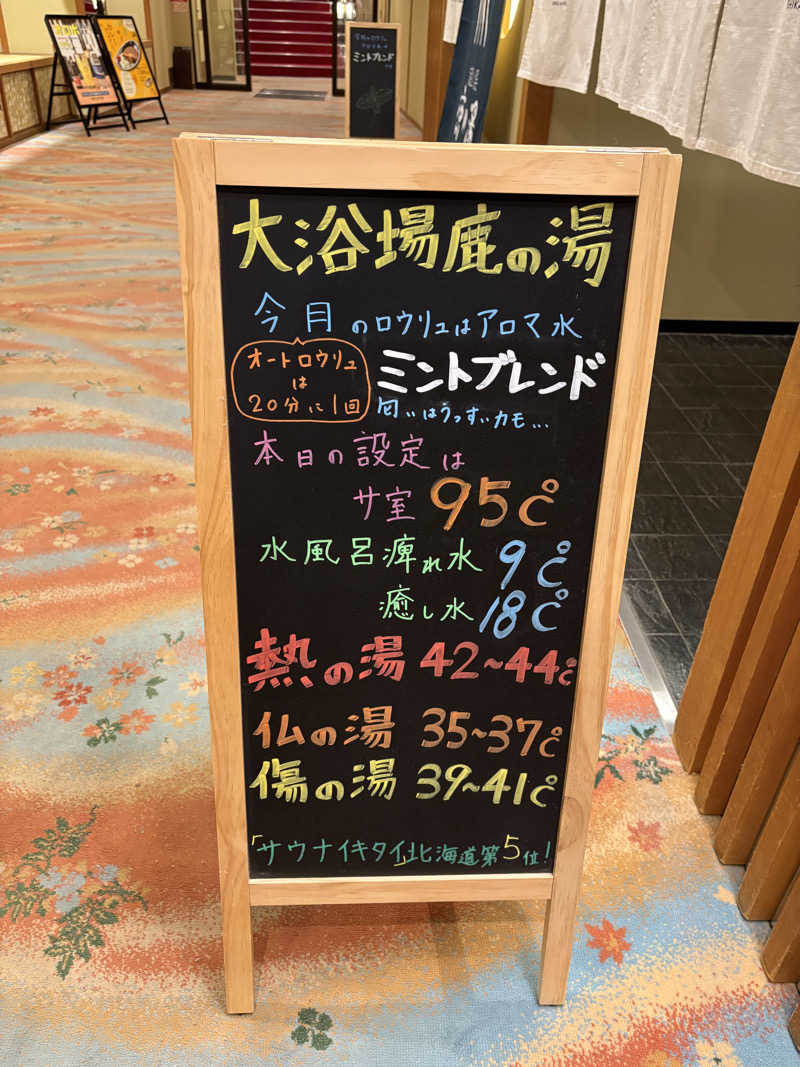 大浴場鹿の湯
今月のロウリュはアロマ水
オートロウリュ
は
20分に1回
ミントブレンド
匂いはうっすいカモ...
本日の設定は
サ室 95℃
水風呂痺れ水 9℃
癒し水 18℃
熱の湯 42~44℃
仏の湯 35~37℃
傷の湯 39~41℃
「サウナイキタイ」北海道第5位!
ミントブレンド